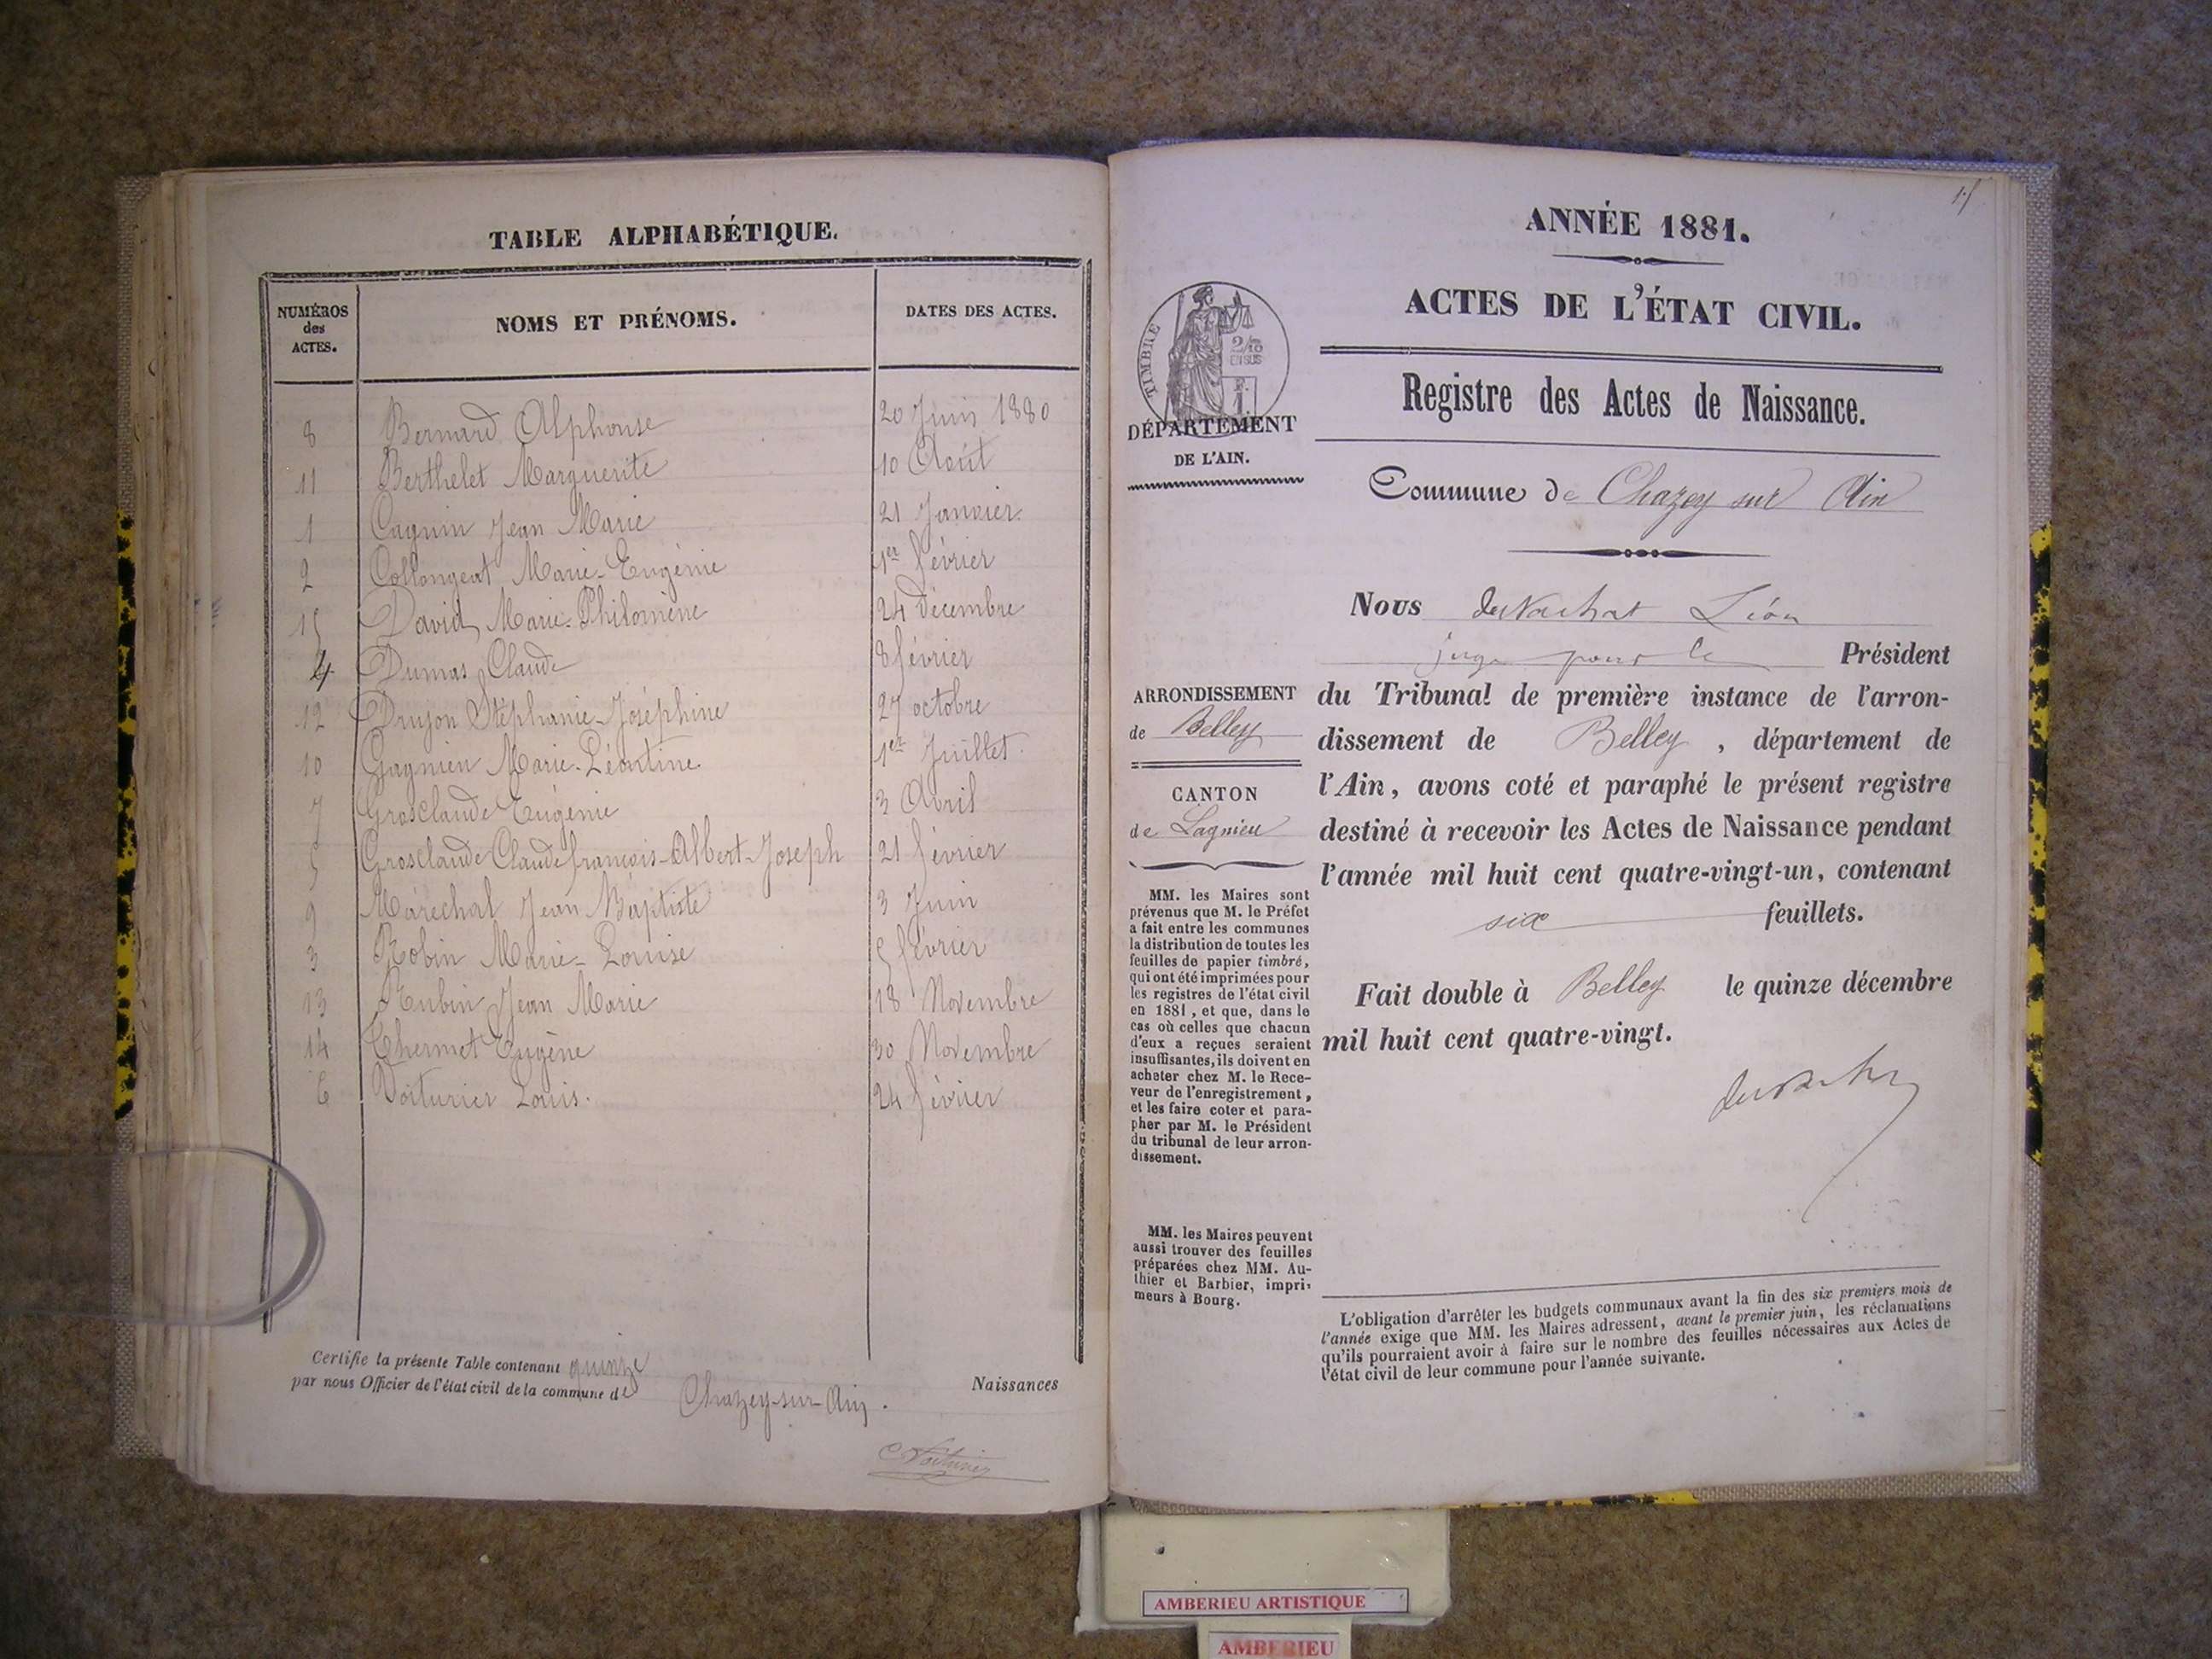 TABLE ALPHABÉTIQUE.
NUMÉROS des ACTES. NOMS ET PRÉNOMS. DATES DES ACTES.
8 Bernard Alphonse 20 Juin 1880
11 Berthelet Marguerite 10 Août
1 Cagnin Jean Marie 21 Janvier
2 Collongeat Marie-Eugénie 1er février
15 David Marie-Philomène 24 décembre
4 Dumas Claude 8 février
12 Drujon Stéphanie-Joséphine 27 octobre
10 Gagnieu Marie-Léontine 1er Juillet
7 Grosclaude Eugénie 3 Avril
5 Grosclaude Claude françois-Albert-Joseph 21 février
9 Maréchal Jean Baptiste 3 Juin
3 Robin Marie-Louise 5 février
13 Rubin Jean Marie 18 Novembre
14 Thermet Eugène 30 Novembre
6 Voiturier Louis. 24 février
Certifie la présente Table contenant quinze Naissances
par nous Officier de l'état civil de la commune de Chazey-sur-Ain.
Voiturier
1.
ANNÉE 1881.
ACTES DE L'ÉTAT CIVIL.
TIMBRE
2/10
EN SUS
DÉPARTEMENT
DE L'AIN.
Registre des Actes de Naissance.
Commune de Chazey sur Ain
Nous Léon
juge pour le Président
du Tribunal de première instance de l'arron-
dissement de Belley, département de
l'Ain, avons coté et paraphé le présent registre
destiné à recevoir les Actes de Naissance pendant
l'année mil huit cent quatre-vingt-un, contenant
six feuillets.
Fait double à Belley le quinze décembre
mil huit cent quatre-vingt.
ARRONDISSEMENT
de Belley
CANTON
de Lagnieu
MM. les Maires sont
prévenus que M. le Préfet
a fait entre les communes
la distribution de toutes les
feuilles de papier timbré,
qui ont été imprimées pour
les registres de l'état civil
en 1881, et que, dans le
cas où celles que chacun
d'eux a reçues seraient
insuffisantes, ils doivent en
acheter chez M. le Rece-
veur de l'enregistrement,
et les faire coter et para-
pher par M. le Président
du tribunal de leur arron-
dissement.
MM. les Maires peuvent
aussi trouver des feuilles
préparées chez MM. Au-
thier et Barbier, impri-
meurs à Bourg.
L'obligation d'arrêter les budgets communaux avant la fin des six premiers mois de
l'année exige que MM. les Maires adressent, avant le premier juin, les réclamations
qu'ils pourraient avoir à faire sur le nombre des feuilles nécessaires aux Actes de
l'état civil de leur commune pour l'année suivante.
AMBERIEU ARTISTIQUE
AMBERIEU